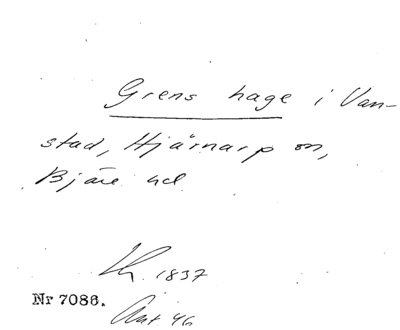 Grens hage i Van-
stad, Hjärnarp sn,
Bjäre hd
1837
Nr 7086.
Akt 46